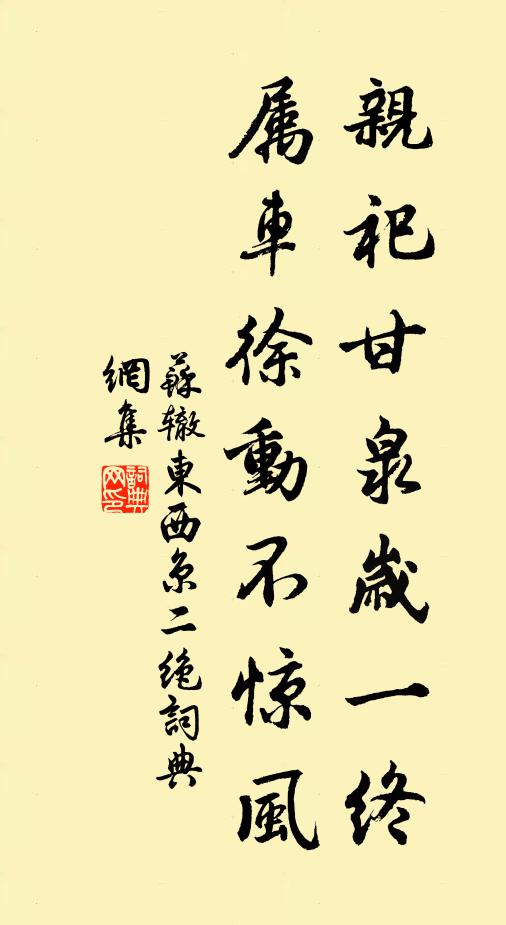 親祀甘泉歲一終
属車徐動不惊風
蘇辙東西京二绝詞典
網集
詞典網印